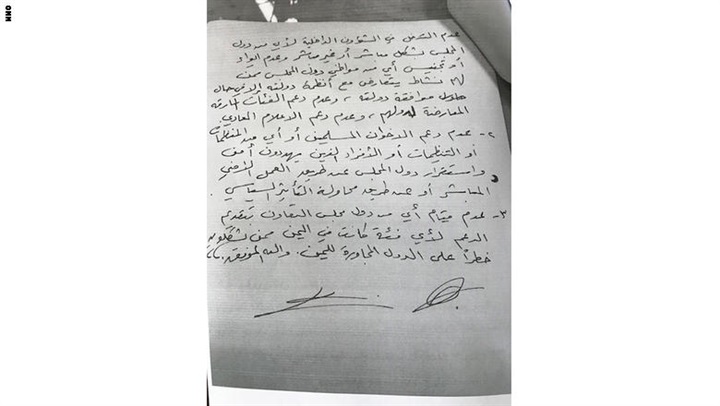 عدم التدخل في الشؤون الداخلية لأي من دول
المجلس بشكل مباشر أو غير مباشر وعدم إيواء
أو تجنيس أي من مواطني دول المجلس ممن
لهم نشاط يتعارض مع أنظمة دولته إلا في حال
موافقة دولته، وعدم دعم الفئات المارقة
المعارضة لدولهم، وعدم دعم الاعلام المعادي.
٢- عدم دعم الاخوان المسلمين أو أي من المنظمات
أو التنظيمات أو الأفراد الذين يهددون أمن
واستقرار دول المجلس عن طريق العمل الأمني
المباشر أو عن طريق محاولة التأثير السياسي
٣- عدم قيام أي من دول مجلس التعاون بتقديم
الدعم لأي فئة كانت في اليمن ممن يشكلون
خطراً على الدول المجاورة لليمن. والله الموفق،،،
CNN